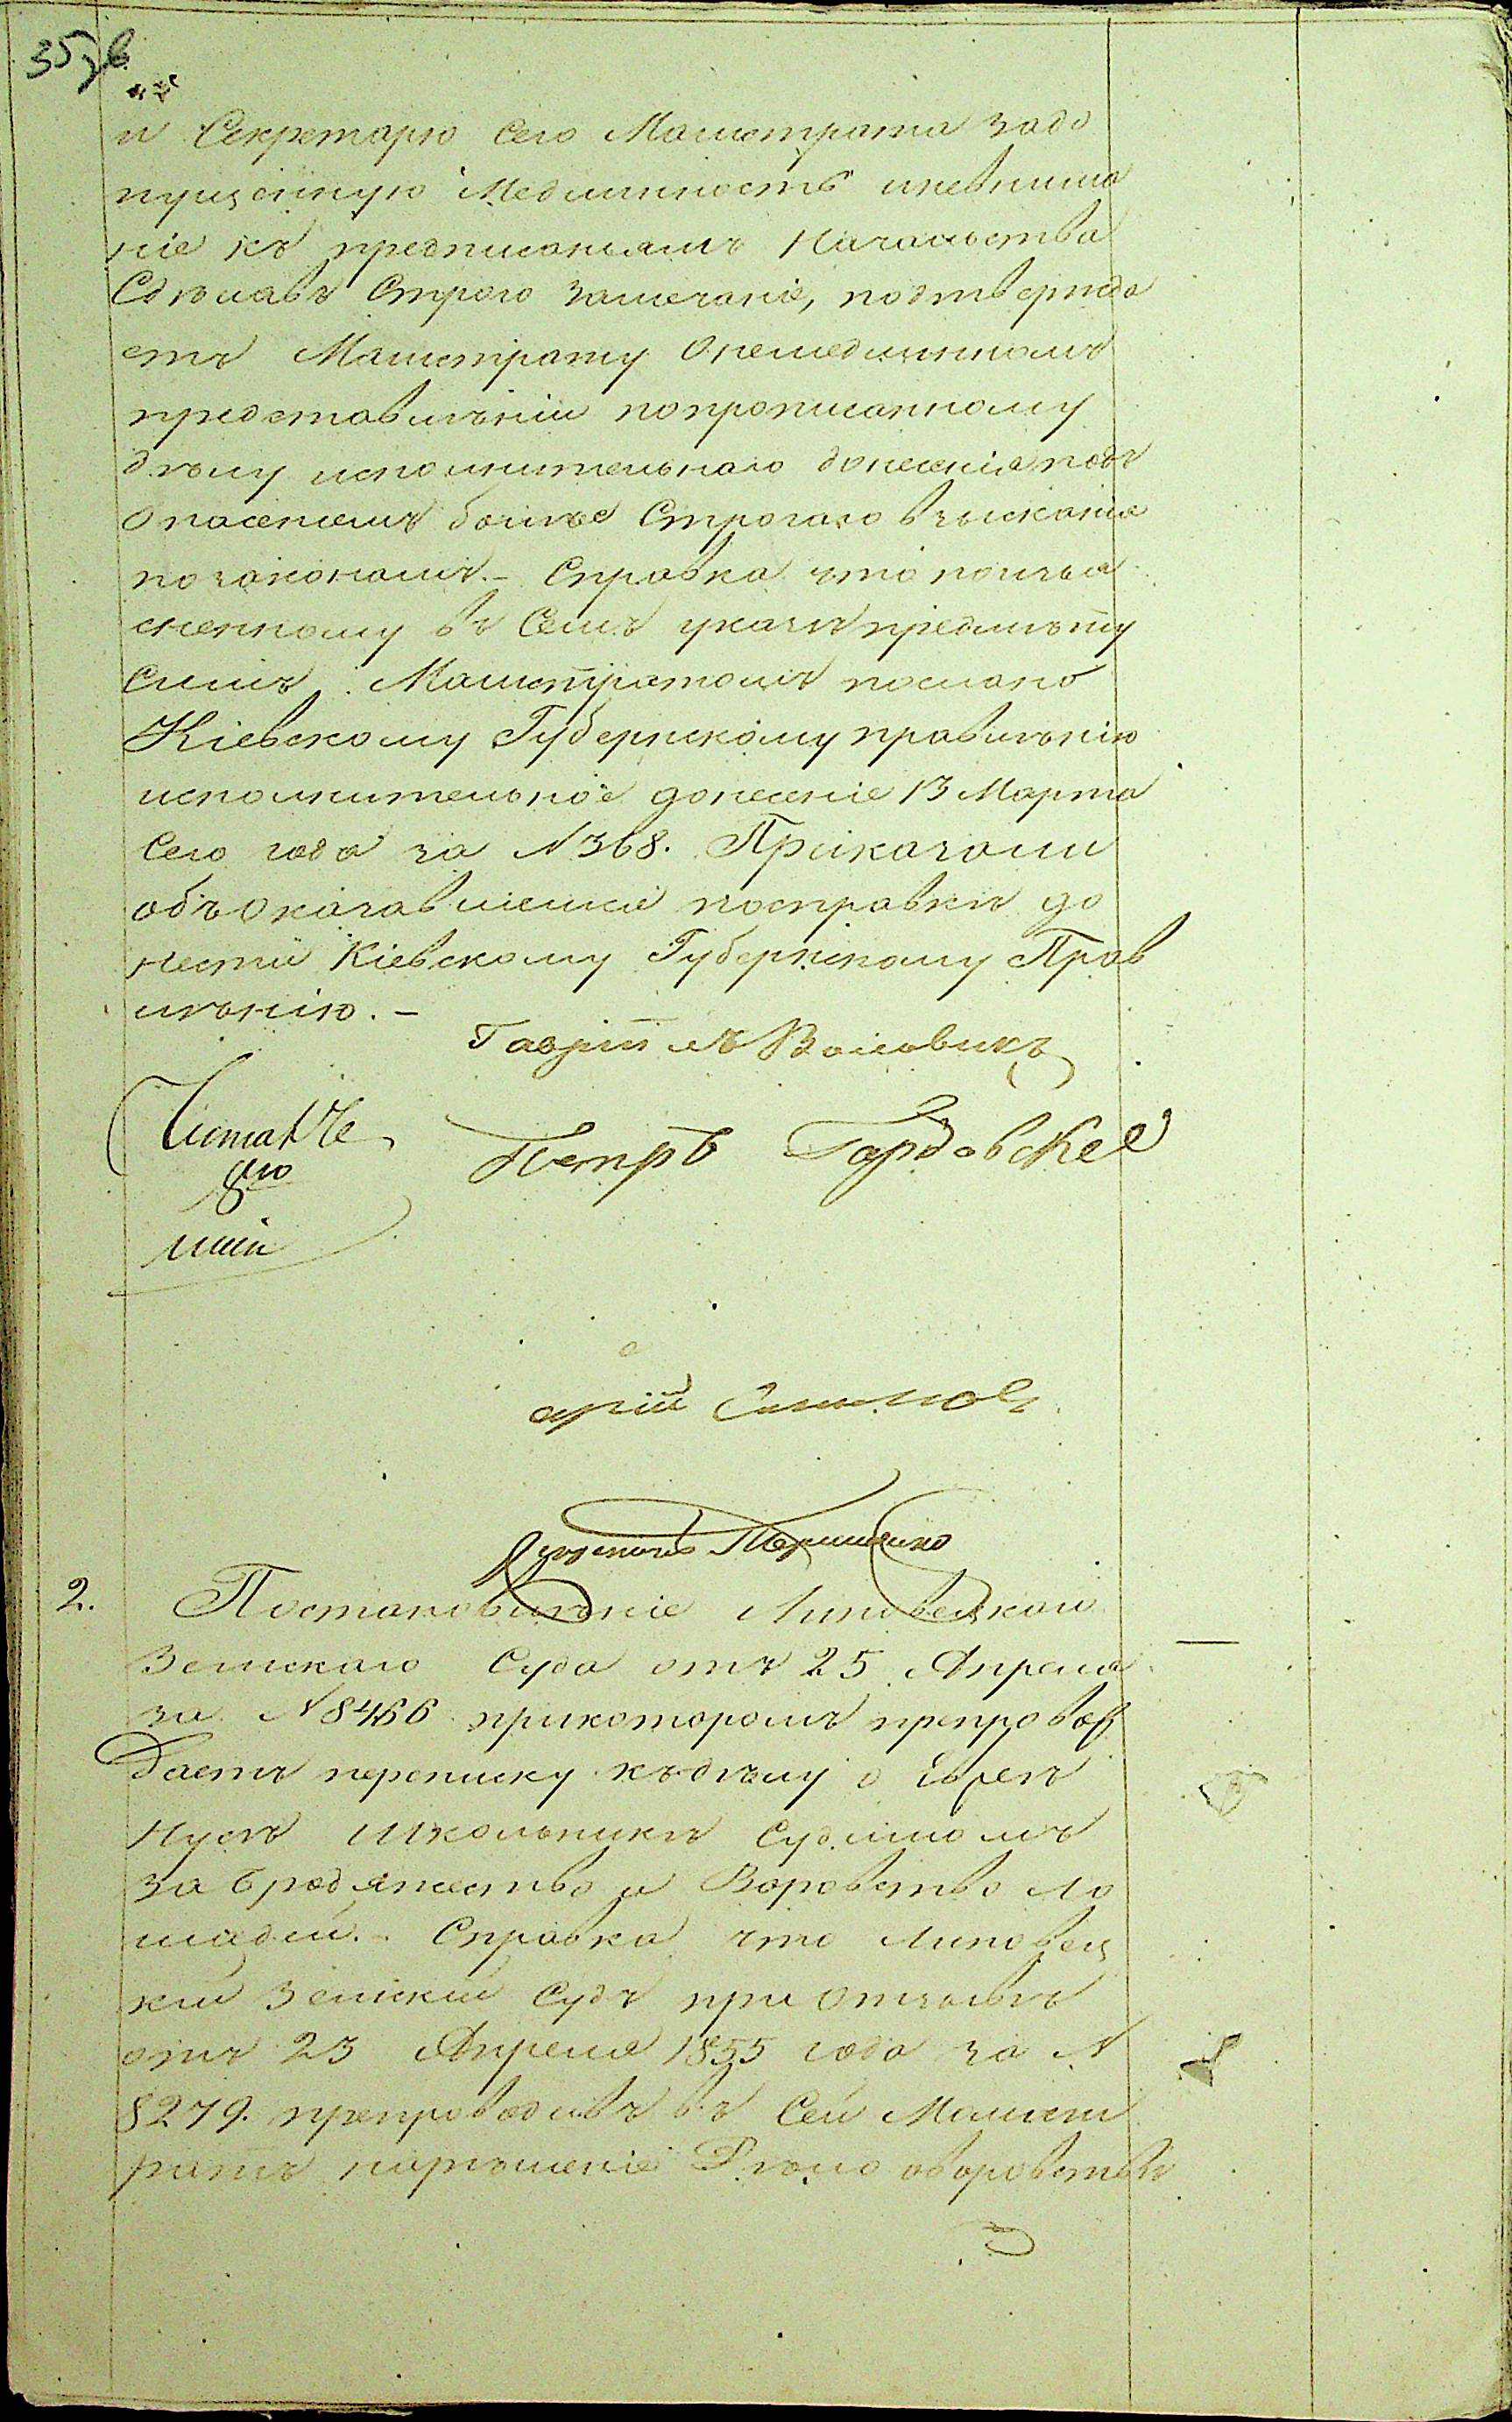 и Секретарю сего Магистрата задо
пущенную медленность иневнима
ніе къ предписаніямъ Начальства
Сдѣлавъ Строго замечаніе, подтвержда
етъ Магистрату Онемедленномъ
представлѣніи попрописанному
дѣлу исполнительнаго донесенія подъ
Опасеніемъ болѣе Строгаго взысканія
позаконамъ. – Справка что поизъя
сненному въ Семъ указѣ предмѣту
Симъ Магистратомъ послано
Кіевскому Губернскому правлѣнію
исполнительное донесеніе 13 Марта
Сего года за N 368. Приказали
объоказавшемся посправкѣ до
нести Кіевскому Губернскому Прав
лѣнію. –
Гавріилъ Воловикъ
Читалъ
Петръ Гардовскей
2. Постановлѣніе Липовецкаго
Земскаго Суда отъ 25 Апреля
за N 8466 прикоторомъ препровож
даетъ переписку къдѣлу о Еврее
Нусе Школьнике Судимомъ
за бродяжество и Воровство ло
шадей. – Справка что Липовец
кій Земскій Судъ при Отзывѣ
отъ 23 Апреля 1855 года за N
8279. препроводивъ въ Сей Магист
ратъ нарѣшеніе Дѣло оворовствѣ